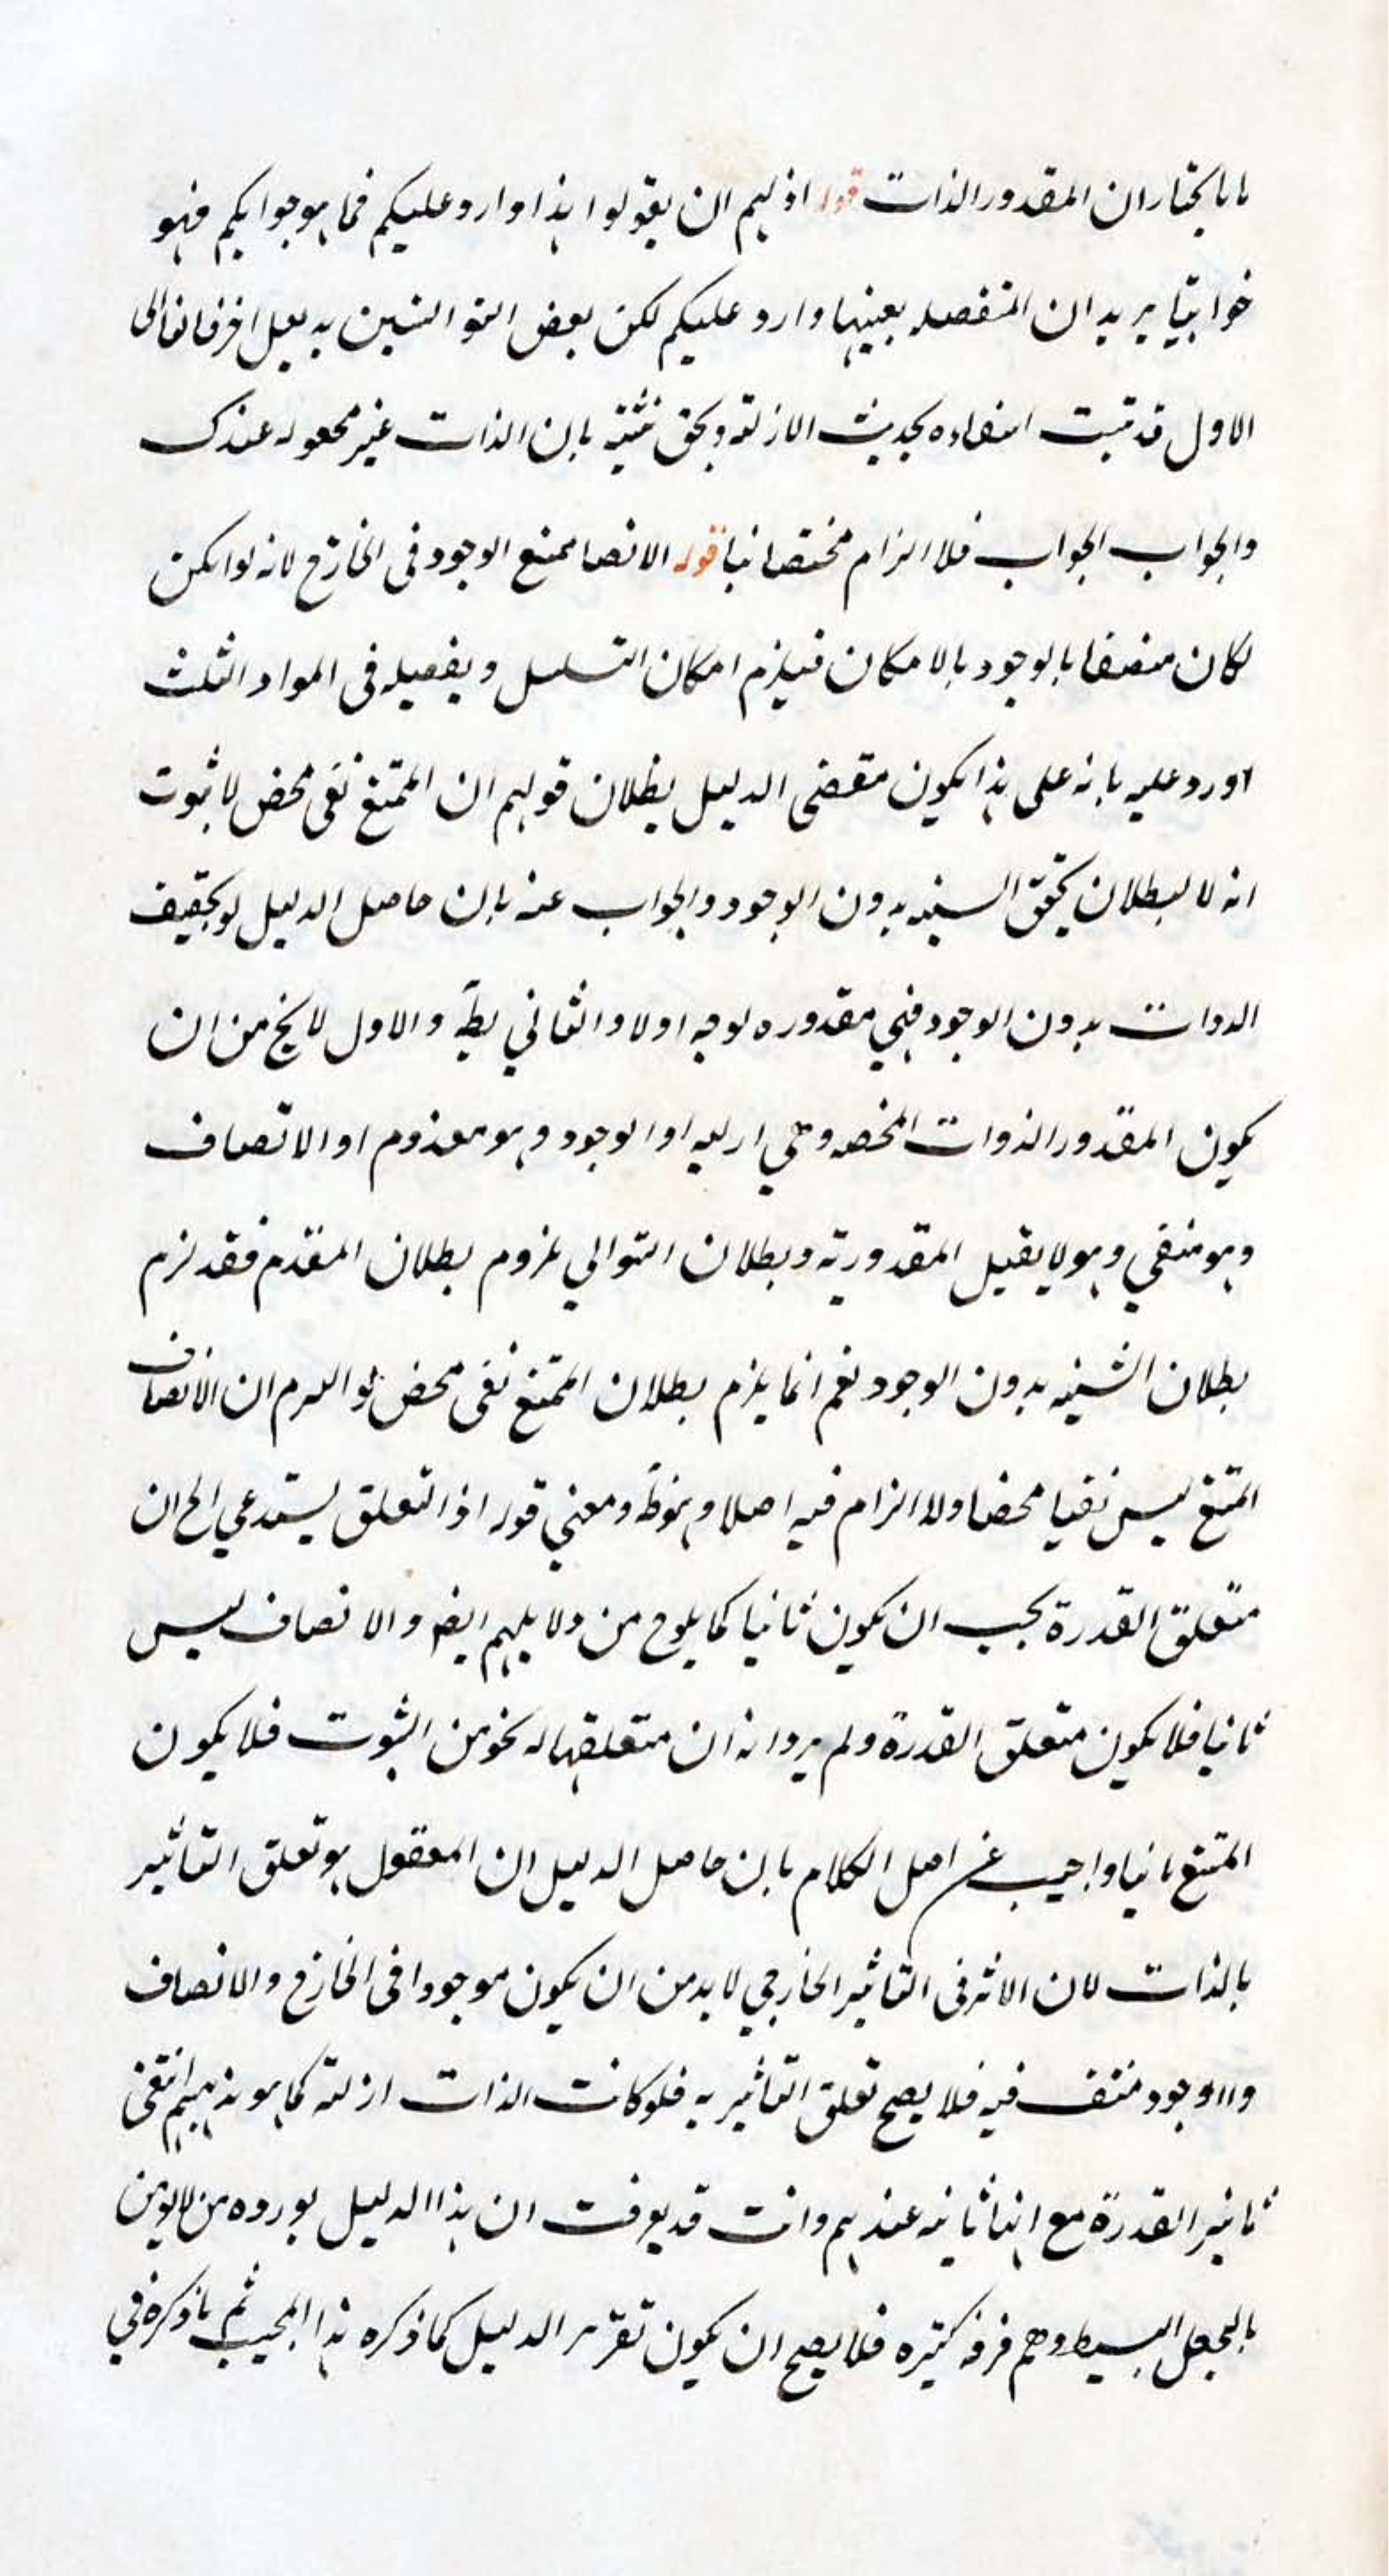 بانا نختار ان المقدور الذات قوله اذ لهم ان يقولوا هذا وارد عليكم فما هو جوابكم فهو
جوابنا يريد ان المنفصله بعينها وارد عليكم لكن بعض التوالي
الاول قد ثبت انتفاءه بحديث الازلية بان الذات غير مجعوله عندك
والجواب الجواب فلا الزام مختصا بنا قوله الاتصا ممتنع الوجود فى الخارج لانه لو امكن
لكان متصفا بالوجود بالامكان فيلزم امكان التسلسل وتفصيله فى المواد الثلث
اورد عليه بانه على هذا يكون مقتضى الدليل بطلان قولهم ان الممتنع نفى محض لا ثبوت
له لا بطلان تحقق الشيئيه بدون الوجود والجواب عنه بان حاصل الدليل لو تحقيق
الدوات بدون الوجود فهي مقدوره لوجه اولا والثاني بط والاول لا يخ من ان
يكون المقدور الذوات المخصه وهي ازليه او الوجود وهو معدوم او الاتصاف
وهو منفي وهو لا يقبل المقدورية وبطلان التوالي ملزوم بطلان المقدم فقد لزم
بطلان الشيئيه بدون الوجود نعم انما يلزم بطلان الممتنع نفى محض لو اللزم ان الاتصاف
الممتنع ليس نفيا محضا ولا الزام فيه اصلا وهو ظ ومعني قوله اذ التعلق يستدعي الخ ان
متعلق القدرة يجب ان يكون ثابتا كما يلوح من دلايلهم ايضا والاتصاف ليس
ثابتا فلا يكون متعلق القدرة ولم يردانه ان متعلقها له نحو من الثبوت فلا يكون
الممتنع ثابتا واجيب عن اصل الكلام بان حاصل الدليل ان المعقول هو تعلق التاثير
بالذات لان الاثر فى التاثير الخارجي لا بد من ان يكون موجودا فى الخارج والاتصاف
والوجود منتف فيه فلا يصح تعلق التاثير به فلو كانت الذات ازلية كما هو مذهبهم انتفى
تاثير القدرة مع انها ثابتة عندهم وانت قد عرفت ان هذا الدليل يورده من لا يومن
بالجعل البسيط وهم فرقه كثيره فلا يصح ان يكون تقرير الدليل كما ذكره هذا المجيب ثم ما ذكره في